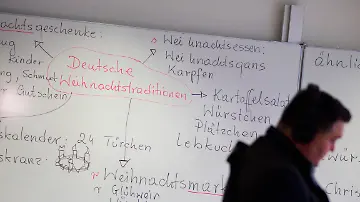 achtsgeschenke:
ug
Kinder
ng, Schmuck
Gutschein
Deutsche
Weihnachtstraditionen
Weihnachtsessen:
Weihnachtsgans
Karpfen
Kartoffelsalat
Würstchen
Plätzchen
Lebkuch
skalender: 24 Türchen
skranz:
Weihnachtsmark
Glühwein
ähnlic
Wü
Chris